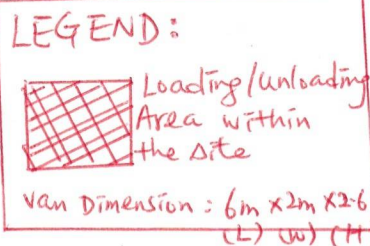 LEGEND:
Loading/Unloading
Area within
the site
Van Dimension : 6m x 2m x 2.6
(L) (W) (H